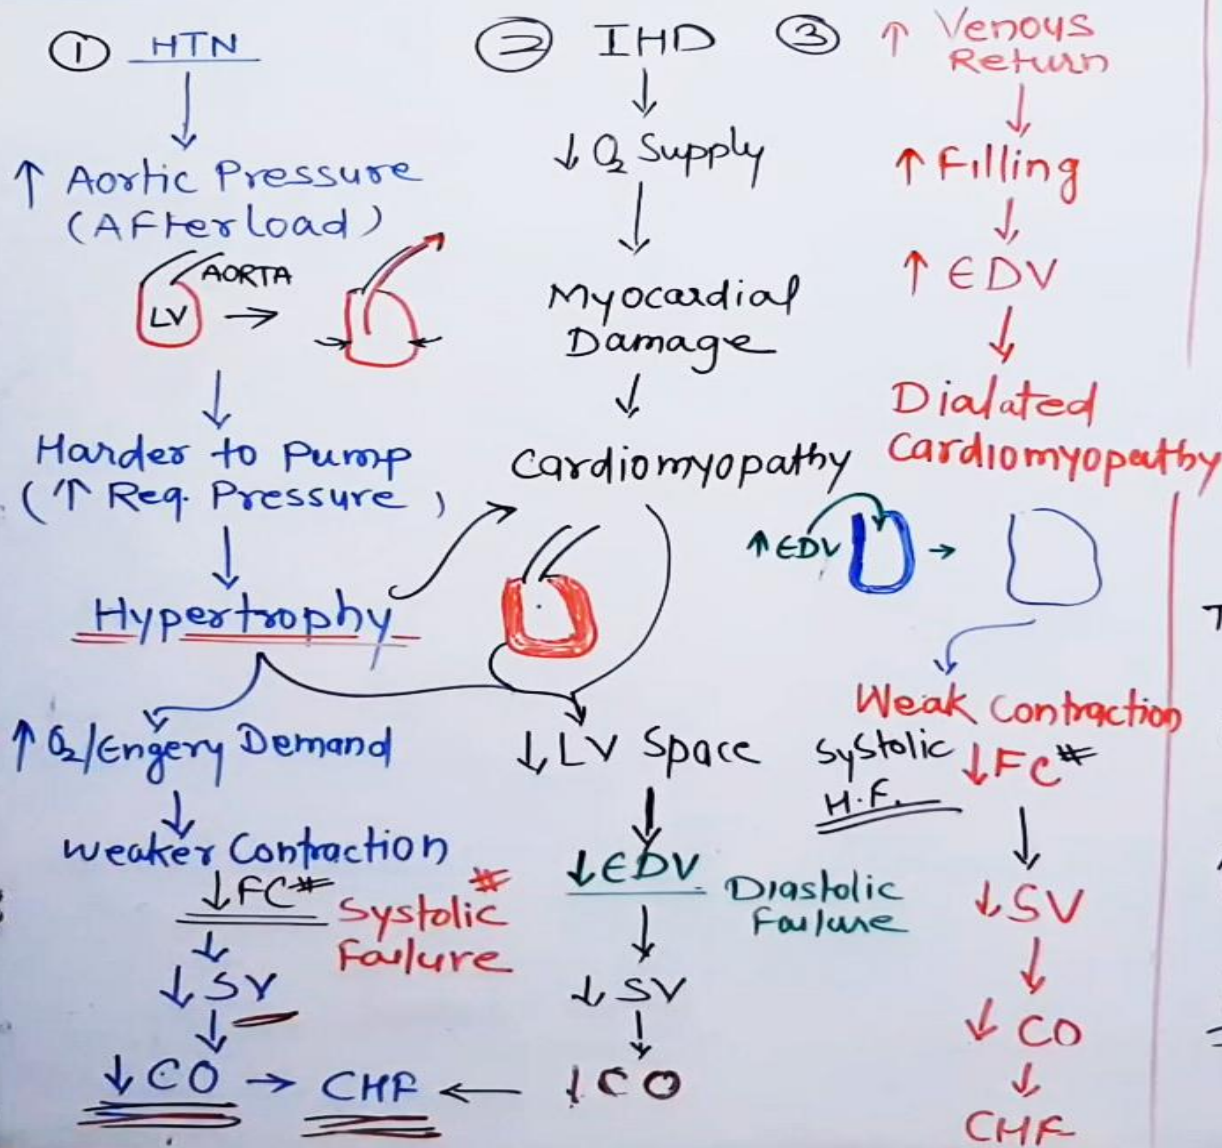 ① HTN
↑ Aortic Pressure
(AFterload)
LV
AORTA
Harder to Pump
(↑ Req. Pressure )
Hypertrophy
↑ O₂/Engery Demand
Weaker Contraction
↓FC#
# Systolic
Failure
↓ SV
↓ CO → CHF ←
② IHD
↓ O₂ Supply
Myocardial
Damage
Cardiomyopathy
↓ LV Space
↓EDV
Diastolic
Failure
↓ SV
↓ CO
③ ↑ Venous
Return
↑ Filling
↑ EDV
Dialated
Cardiomyopathy
↑ EDV →
Weak Contraction
Systolic
H.F.
↓FC#
↓SV
↓ CO
CHF